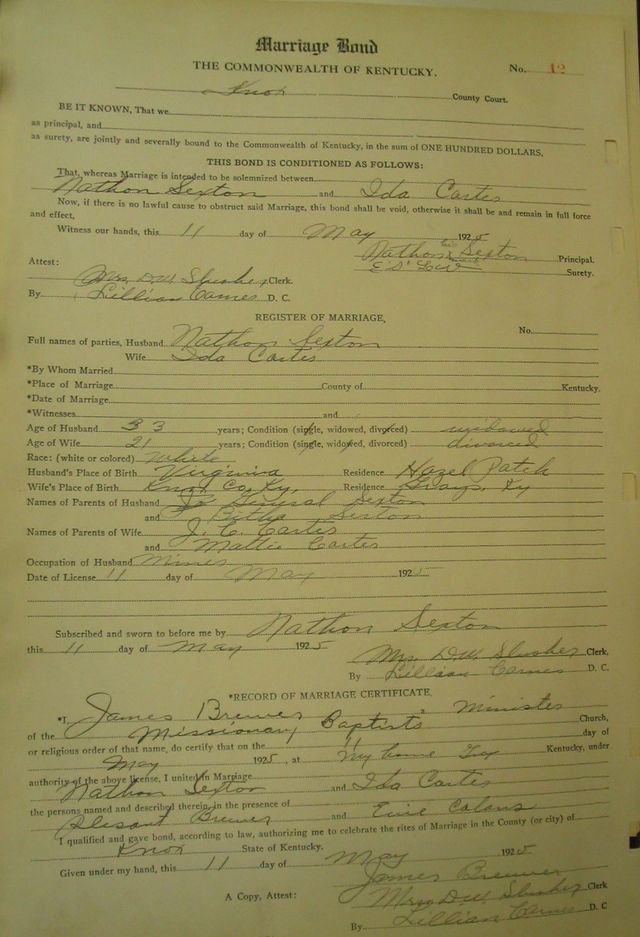 Marriage Bond
THE COMMONWEALTH OF KENTUCKY.
No. 12
Knox County Court.
BE IT KNOWN, That we
as principal, and
as surety, are jointly and severally bound to the Commonwealth of Kentucky, in the sum of ONE HUNDRED DOLLARS,
THIS BOND IS CONDITIONED AS FOLLOWS:
That, whereas Marriage is intended to be solemnized between
Nathon Sexton and Ida Carter
Now, if there is no lawful cause to obstruct said Marriage, this bond shall be void, otherwise it shall be and remain in full force
and effect,
Witness our hands, this 11 day of May 1925
Nathon his Sexton Principal.
Attest: Surety.
Mrs. D.W. Slusher Clerk.
By Lillian Carnes D. C.
REGISTER OF MARRIAGE,
No.
Full names of parties, Husband Nathon Sexton
Wife Ida Carter
*By Whom Married
*Place of Marriage County of Kentucky.
*Date of Marriage
*Witnesses and
Age of Husband 33 years; Condition (single, widowed, divorced) widowed
Age of Wife 21 years; Condition (single, widowed, divorced) divorced
Race: (white or colored) White
Husband's Place of Birth Virginia Residence Hazel Patch
Wife's Place of Birth Knox Co, Ky, Residence Grays, Ky
Names of Parents of Husband General Sexton
and Sexton
Names of Parents of Wife J. C. Carter
and Mattie Carter
Occupation of Husband Miner
Date of License 11 day of May 1925
Subscribed and sworn to before me by Nathon Sexton
this 11 day of May 1925
Mrs. D.W. Slusher Clerk,
By Lillian Carnes D. C.
*RECORD OF MARRIAGE CERTIFICATE,
*I, James Brewer Minister
of the Missionary Baptist Church,
or religious order of that name, do certify that on the 11 day of
May 1925, at my home Kentucky, under
authority of the above license, I united in Marriage
Nathon Sexton and Ida Carter
the persons named and described therein, in the presence of
Plesant Brewer and
I qualified and gave bond, according to law, authorizing me to celebrate the rites of Marriage in the County (or city) of
Knox State of Kentucky.
Given under my hand, this 11 day of May 1925
James Brewer
A Copy, Attest: Mrs. D.W. Slusher Clerk
By Lillian Carnes D. C